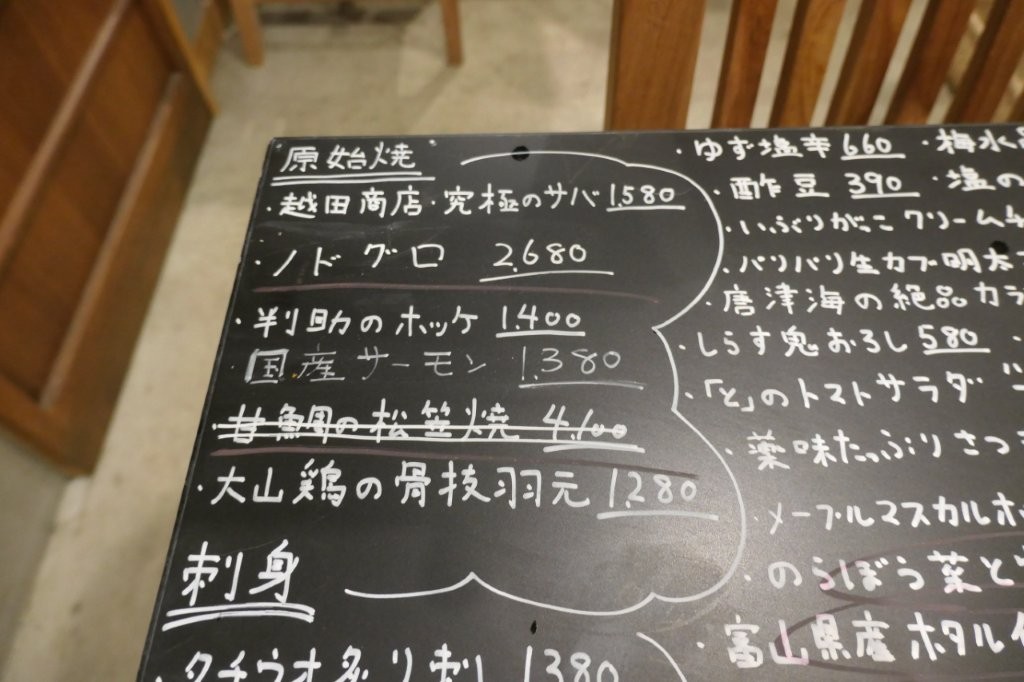 原始焼
・越田商店・究極のサバ 1,580
・ノドグロ 2,680
・判助のホッケ 1,400
・国産サーモン 1,380
・甘鯛の松笠焼 4,100
・大山鶏の骨技羽元 1,280
刺身
・タチウオ炙り刺し 1380
・ゆず塩辛 660 ・梅水
・酢豆 390 ・塩の
・いぶりがっこクリーム
・バリバリ生カブ明太
・唐津海の絶品カラ
・しらす鬼おろし 580 ・
・「と」のトマトサラダ
・薬味たっぷりさつ
・メープルマスカルポ
・のらぼう菜と
・富山県産ホタルイ